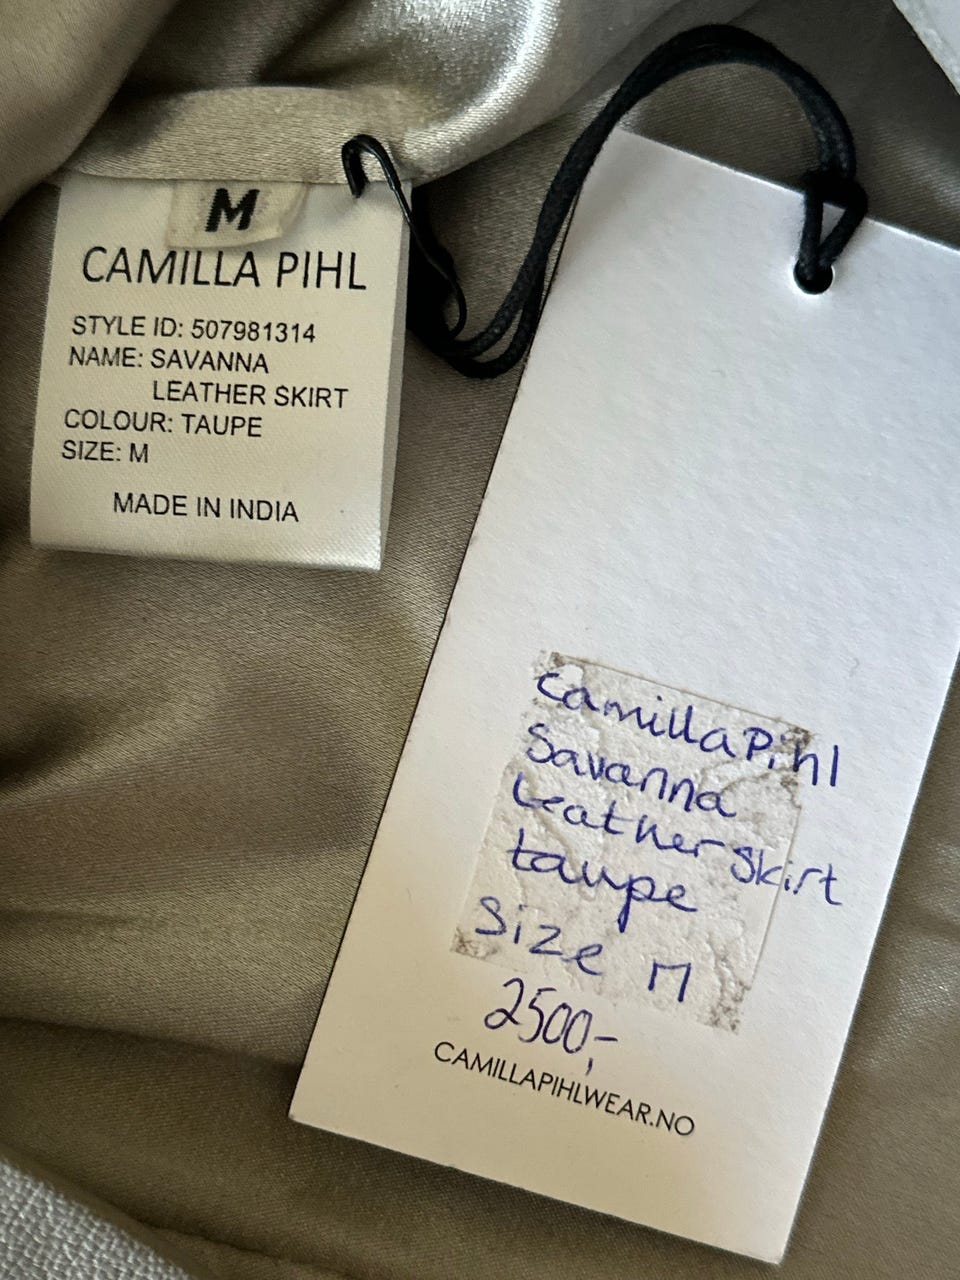 M
CAMILLA PIHL
STYLE ID: 507981314
NAME: SAVANNA
LEATHER SKIRT
COLOUR: TAUPE
SIZE: M
MADE IN INDIA
Camilla Pihl
Savanna
Leather Skirt
taupe
Size M
2500,-
CAMILLAPIHLWEAR.NO